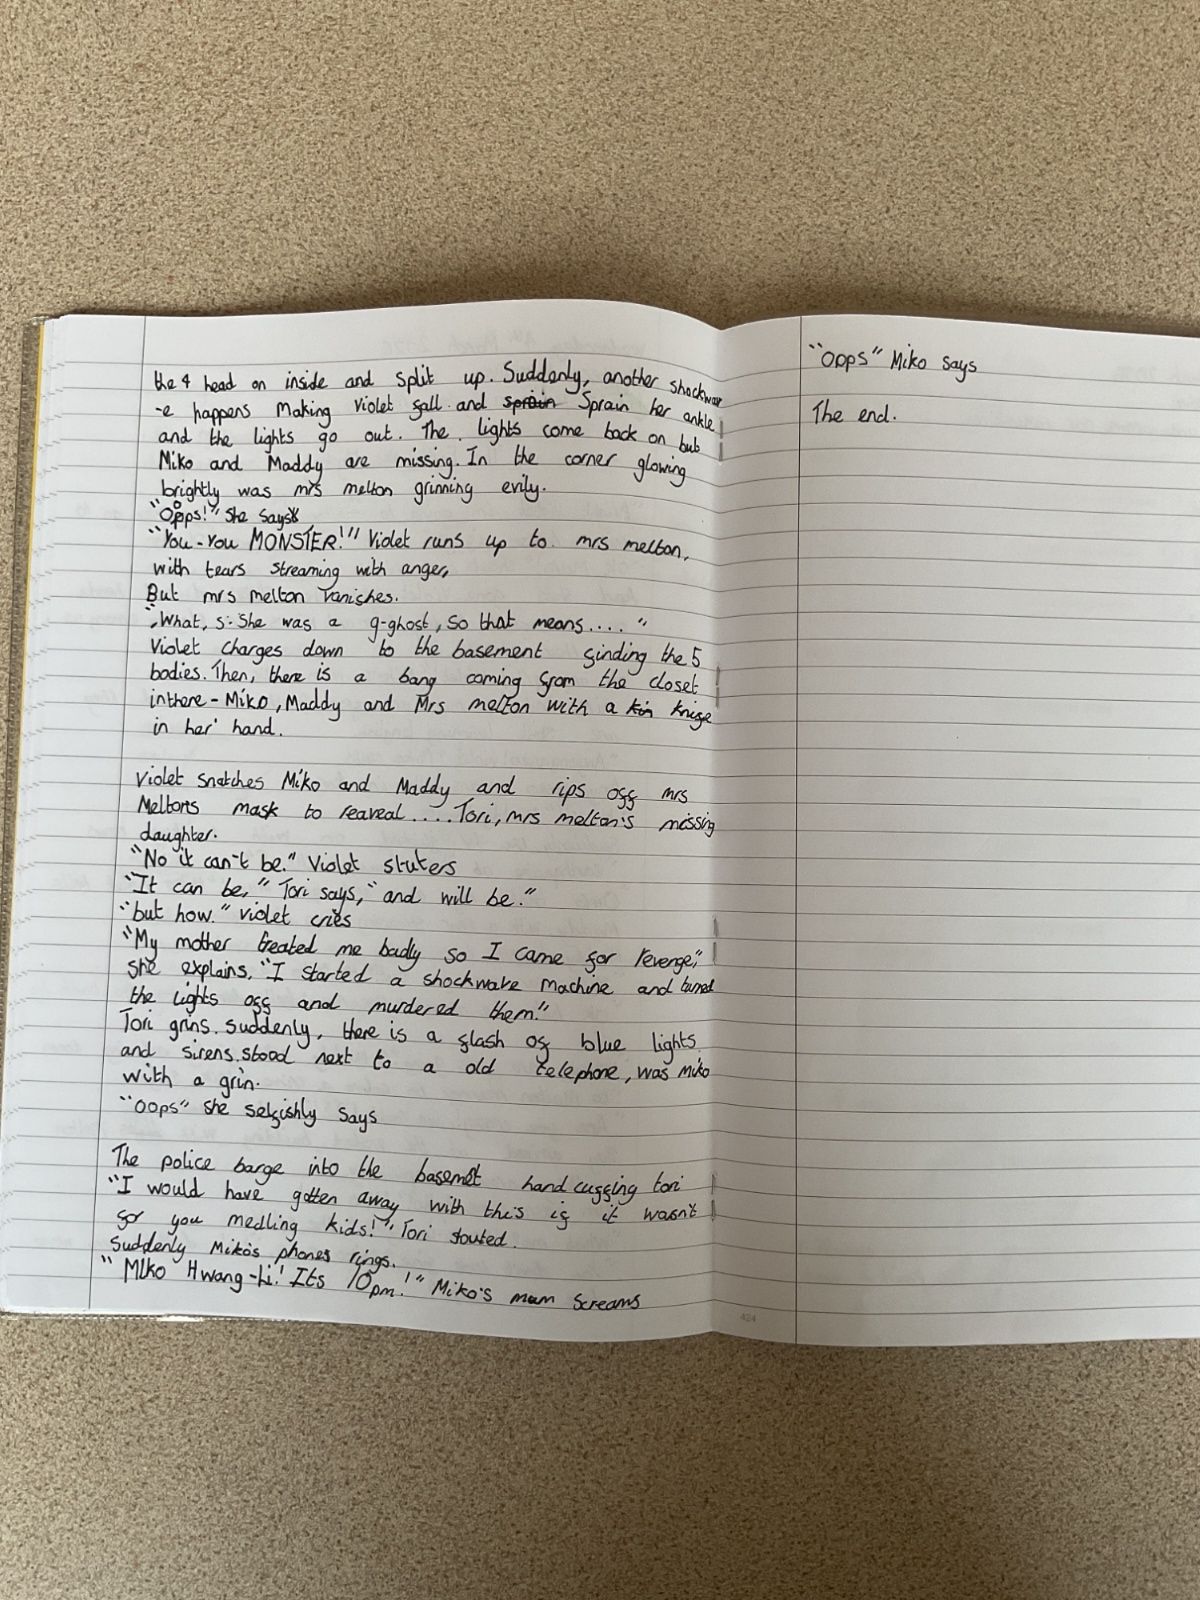 the 4 head on inside and split up. Suddenly, another shockwav
-e happens making Violet fall and sprain Sprain her ankle
and the lights go out. The lights come back on but
Miko and Maddy are missing. In the corner glowing
brightly was mrs melton grinning evily.
"Opps!" she says
"You-You MONSTER!" Violet runs up to mrs melton,
with tears streaming with anger,
But mrs melton vanishes.
"What, s-She was a g-ghost, so that means...."
Violet charges down to the basement finding the 5
bodies. Then, there is a bang coming from the closet
inthere - Miko, Maddy and Mrs melton with a kin knife
in her hand.
Violet snatches Miko and Maddy and rips off mrs
Meltons mask to reaveal....Tori, mrs melton's missing
daughter.
"No it can't be." Violet stuters
"It can be," Tori says, "and will be."
"but how." violet cries
"My mother treated me badly so I came for revenge,"
she explains, "I started a shockwave machine and turned
the lights off and murdered them."
Tori grins. suddenly, there is a flash of blue lights
and sirens. stood next to a old telephone, was miko
with a grin.
"Oops" she selfishly says
The police barge into the basemet handcuffing tori
"I would have gotten away with this if it wasn't
for you medling kids!" Tori shouted.
Suddenly Miko's phones rings.
"Miko Hwang-Li! Its 10pm!" Miko's mum screams
"Opps" Miko says
The end.
424